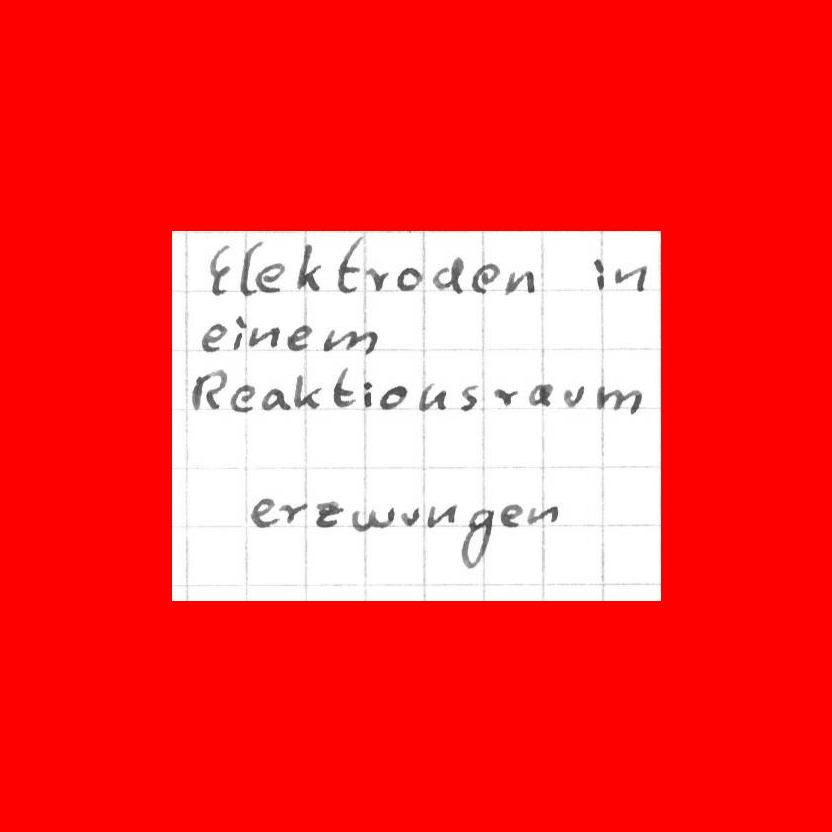 Elektroden in
einem
Reaktionsraum
erzwungen